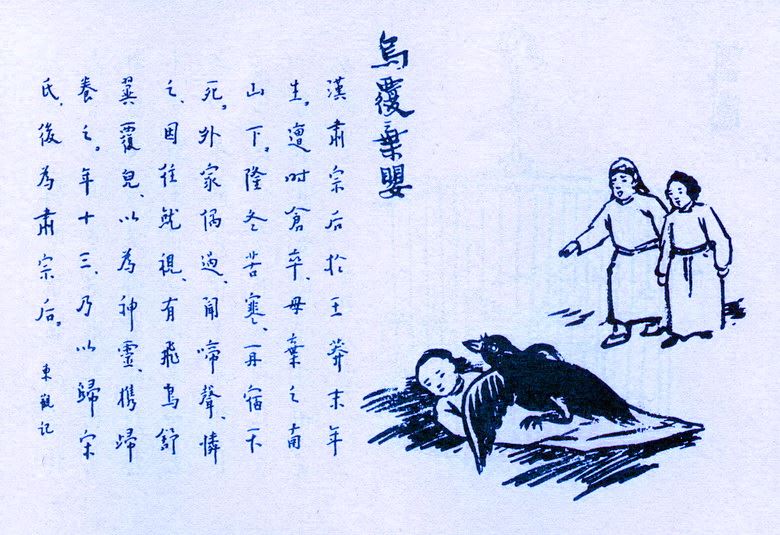 烏覆棄嬰
漢肅宗后於王莽末年
生。遭時倉卒、母棄之南
山下。隆冬苦寒、再宿不
死。外家偶過、聞啼聲、憐
之、因往就視、有飛鳥舒
翼覆兒、以為神靈、攜歸
養之。年十三、乃以歸宋
氏、後為肅宗后。 東觀記